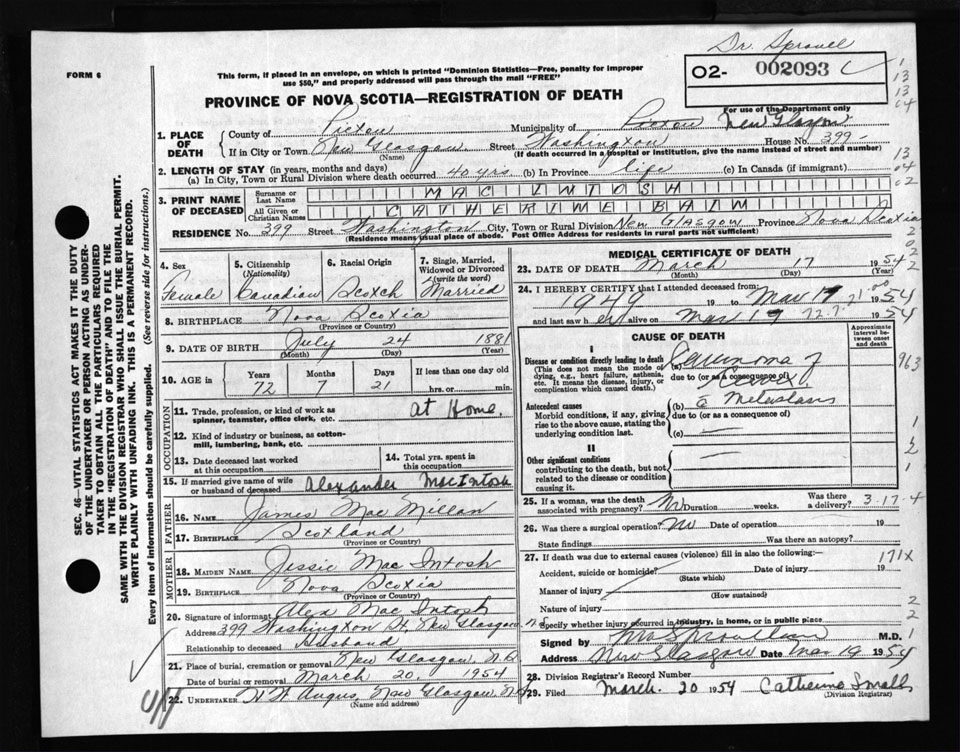 Dr. Sproull
FORM 6
This form, if placed in an envelope, on which is printed "Dominion Statistics—Free, penalty for improper
use $50," and properly addressed will pass through the mail "FREE"
02- 002093
For use of the Department only
PROVINCE OF NOVA SCOTIA—REGISTRATION OF DEATH
1. PLACE OF DEATH
County of Pictou Municipality of Pictou New Glasgow
If in City or Town New Glasgow Street Washington House No. 399
(Name) (If death occurred in a hospital or institution, give the name instead of street and number)
2. LENGTH OF STAY (in years, months and days)
(a) In City, Town or Rural Division where death occurred 40 yrs. (b) In Province life (c) In Canada (if immigrant)
3. PRINT NAME OF DECEASED
Surname or Last Name MAC INTOSH
All Given or Christian Names CATHERINE BAIN
RESIDENCE No. 399 Street Washington City, Town or Rural Division New Glasgow Province Nova Scotia
(Residence means usual place of abode. Post Office Address for residents in rural parts not sufficient)
4. Sex Female
5. Citizenship (Nationality) Canadian
6. Racial Origin Scotch
7. Single, Married, Widowed or Divorced (write the word) Married
8. BIRTHPLACE Nova Scotia
(Province or Country)
9. DATE OF BIRTH July 24 1881
(Month) (Day) (Year)
10. AGE in Years 72 Months 7 Days 21 If less than one day old hrs. or min.
OCCUPATION
11. Trade, profession, or kind of work as spinner, teamster, office clerk, etc. at Home.
12. Kind of industry or business, as cotton-mill, lumbering, bank, etc.
13. Date deceased last worked at this occupation
14. Total yrs. spent in this occupation
15. If married give name of wife or husband of deceased Alexander MacIntosh
FATHER
16. NAME James Mac Millan
17. BIRTHPLACE Scotland
(Province or Country)
MOTHER
18. MAIDEN NAME Jessie Mac Intosh
19. BIRTHPLACE Nova Scotia
(Province or Country)
20. Signature of informant Alex Mac Intosh
Address 399 Washington St. New Glasgow N.S.
Relationship to deceased Husband
21. Place of burial, cremation or removal New Glasgow, N.S.
Date of burial or removal March 20, 1954
22. UNDERTAKER Angus, New Glasgow, N.S.
(Name and address)
MEDICAL CERTIFICATE OF DEATH
23. DATE OF DEATH March 17 1954
(Month) (Day) (Year)
24. I HEREBY CERTIFY that I attended deceased from:
1949 19 to Mar 17 1954
and last saw her alive on Mar 17 1954
CAUSE OF DEATH
Approximate interval between onset and death
I
Disease or condition directly leading to death
(This does not mean the mode of dying, e.g., heart failure, asthenia, etc. It means the disease, injury, or complication which caused death.)
(a) Carcinoma of
due to (or as a consequence of)
Cervix.
Antecedent causes
Morbid conditions, if any, giving rise to the above cause, stating the underlying condition last.
(b) c̄ Metastasis
due to (or as a consequence of)
(c)
II
Other significant conditions
contributing to the death, but not related to the disease or condition causing it.
25. If a woman, was the death associated with pregnancy? No Duration weeks. Was there a delivery? 3-17-4
26. Was there a surgical operation? No Date of operation 19
State findings Was there an autopsy?
27. If death was due to external causes (violence) fill in also the following:—
171X
Accident, suicide or homicide? Date of injury 19
(State which)
Manner of injury
(How sustained)
Nature of injury
Specify whether injury occurred in industry, in home, or in public place
Signed by M.D.
Address New Glasgow Date Mar 19 1954
28. Division Registrar's Record Number
29. Filed March. 20 1954 Catherine Small
(Division Registrar)
SEC. 46—VITAL STATISTICS ACT MAKES IT THE DUTY
OF THE UNDERTAKER OR PERSON ACTING AS UNDER-
TAKER TO OBTAIN ALL THE PARTICULARS REQUIRED
IN THE "REGISTRATION OF DEATH" AND TO FILE THE
SAME WITH THE DIVISION REGISTRAR WHO SHALL ISSUE THE BURIAL PERMIT.
WRITE PLAINLY WITH UNFADING INK. THIS IS A PERMANENT RECORD.
Every item of information should be carefully supplied. (See reverse side for instructions.)